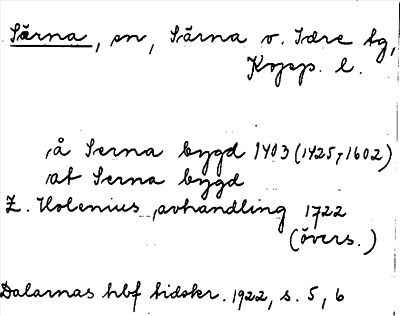 Särna, sn, Särna o. Idre tg,
Kopp. l.
,å Serna bygd 1403 (1425,-1602)
,at Serna bygd
Z. Holenius, avhandling 1722
(övers.)
Dalarnas hbf tidskr. 1922, s. 5, 6